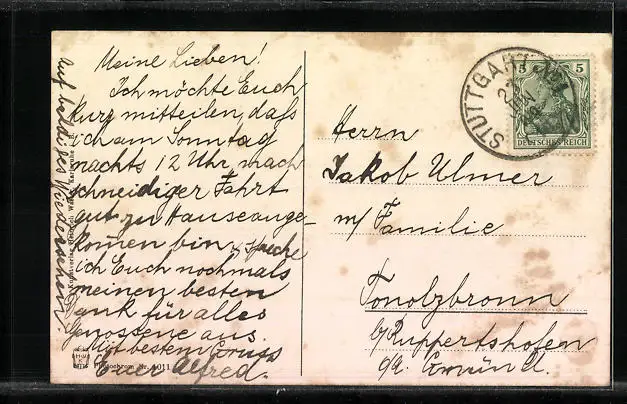 Meine Lieben!
Ich möchte Euch
kurz mitteilen, daß
ich am Sonntag
nachts 12 Uhr nach
schneidiger Fahrt
gut zu Hause ange-
kom̅en bin, spreche
ich Euch nochmals
meinen besten
Dank für alles
Genossene aus.
Mit bestem Gruss
Euer Alfred.
Auf baldiges Wiedersehen!
Photochrom Nr.
STUTTGART
5 5
DEUTSCHES REICH
Herrn
Jakob Ulmer
m/ Familie
Tonolzbronn
b/Ruppertshofen
O/A. Gmünd